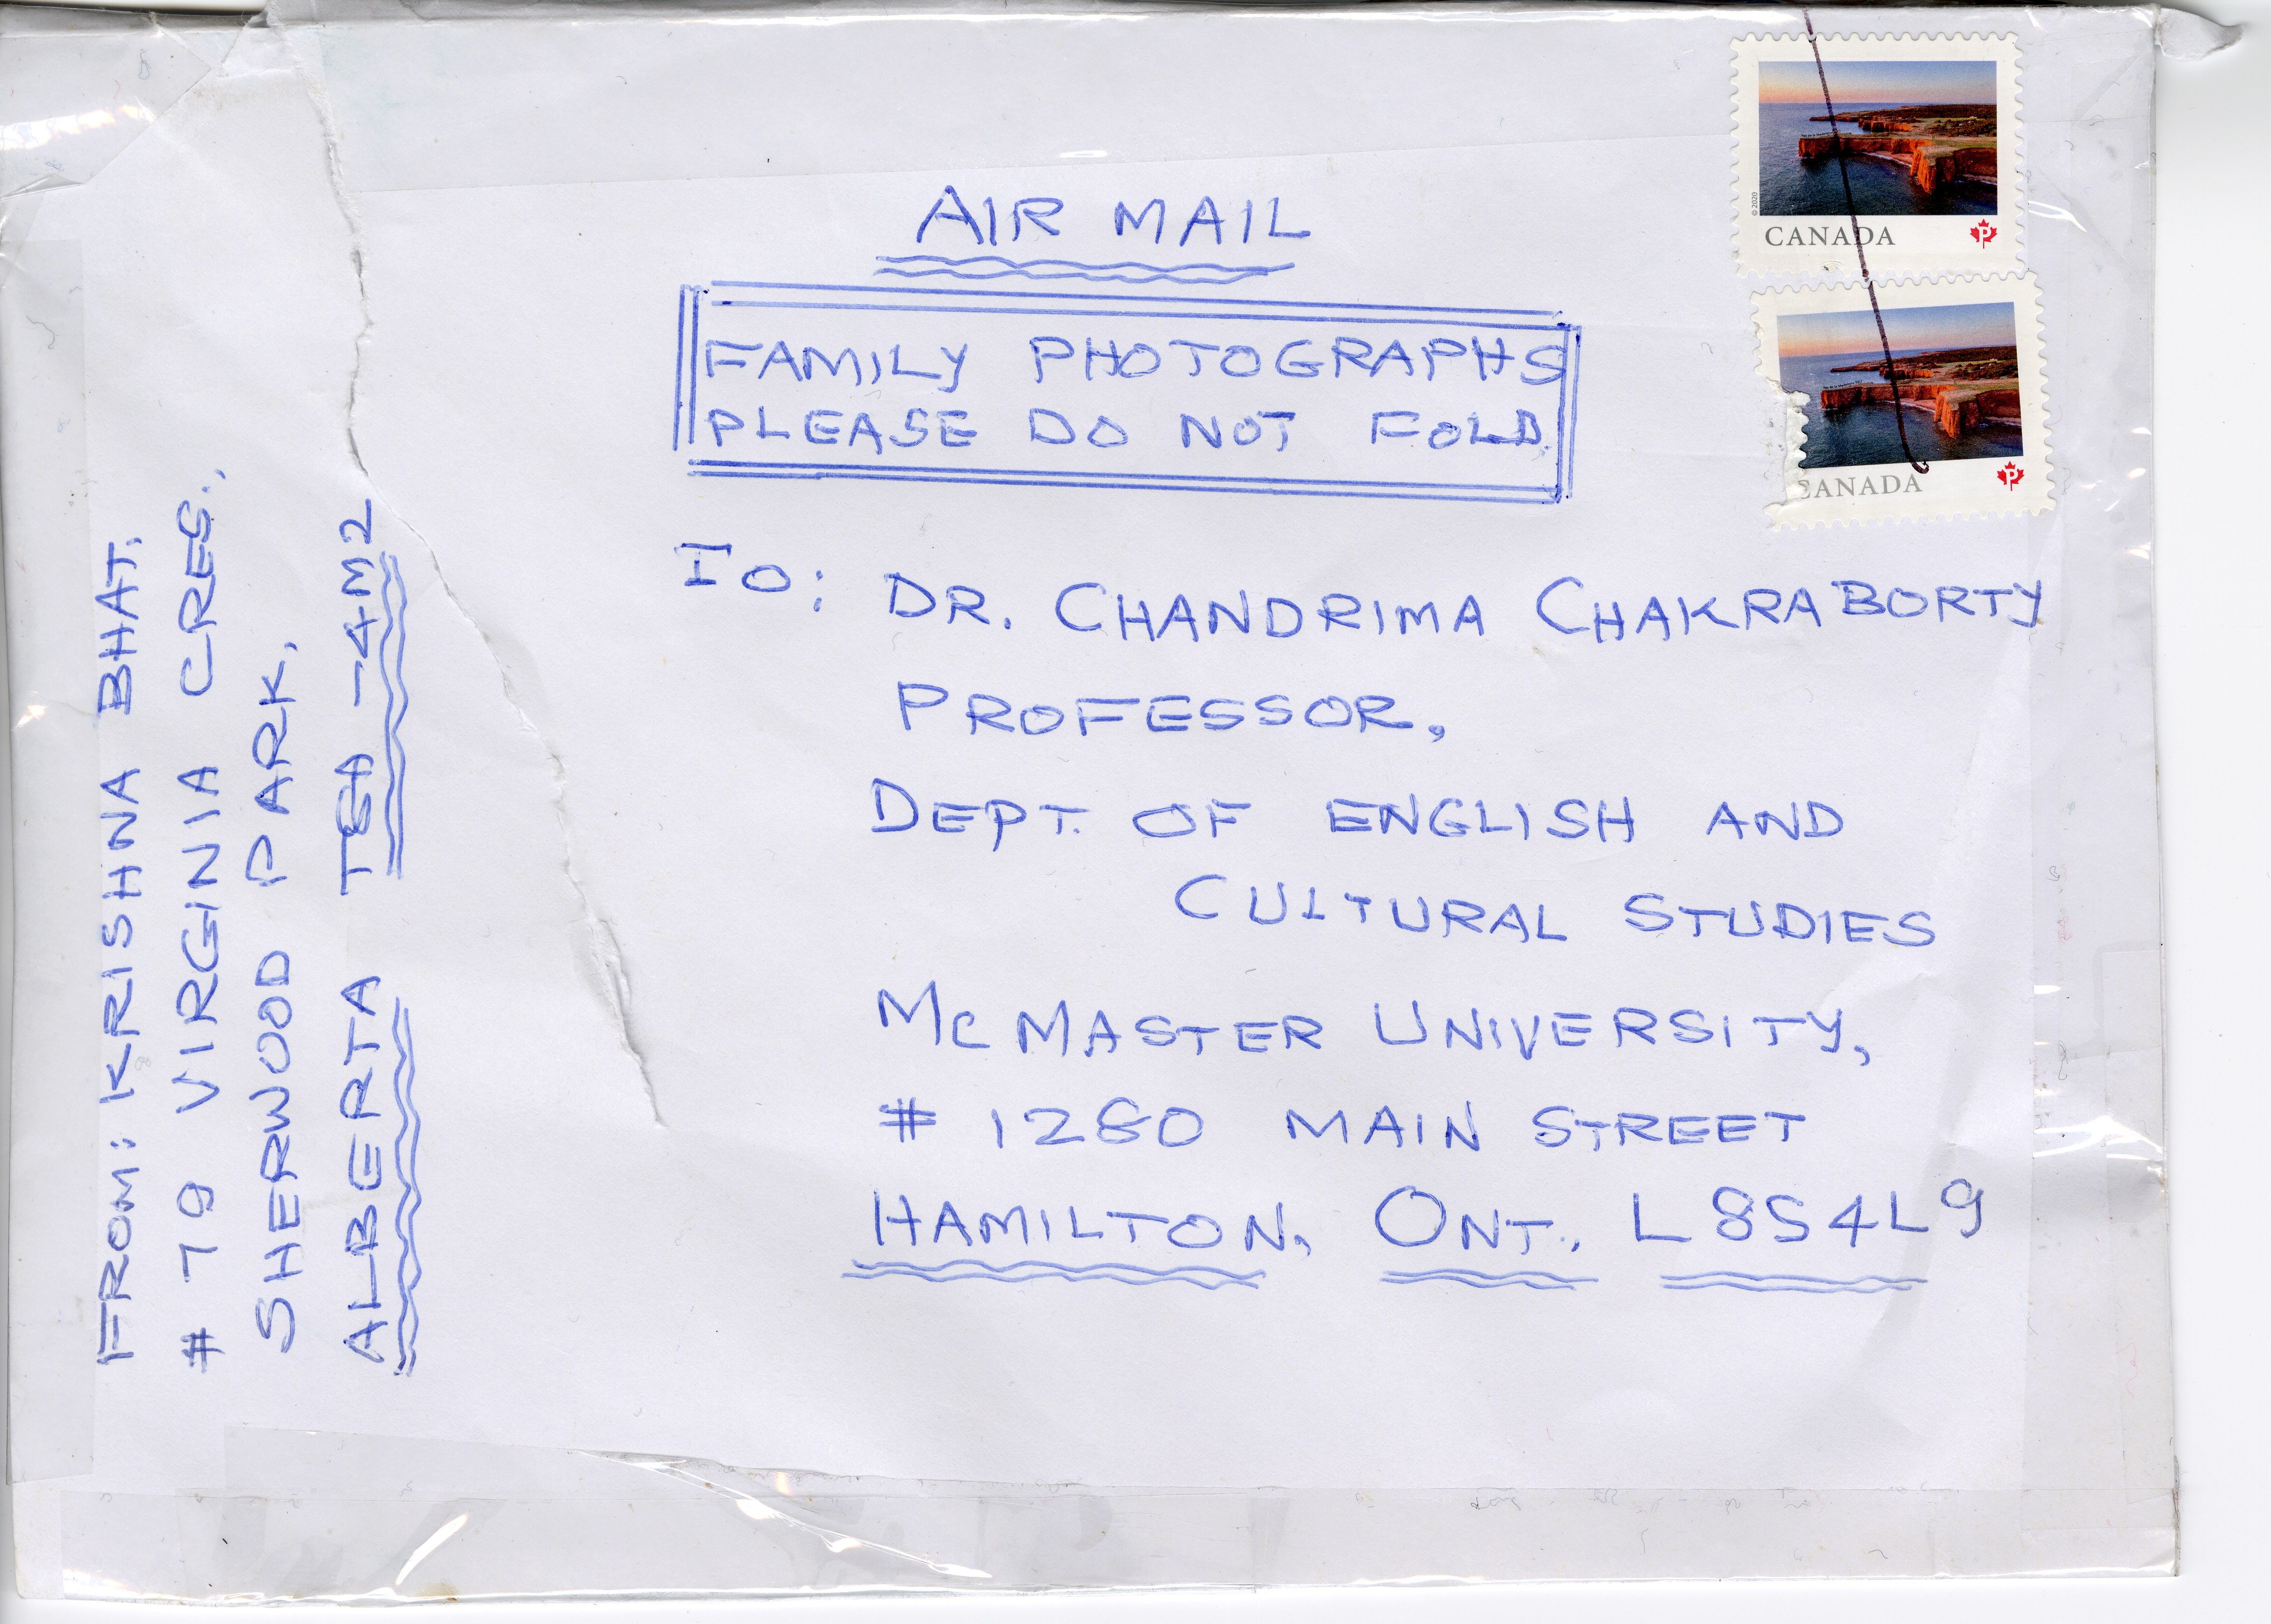 AIR MAIL
FAMILY PHOTOGRAPHS
PLEASE DO NOT FOLD.
TO: DR. CHANDRIMA CHAKRABORTY
PROFESSOR,
DEPT. OF ENGLISH AND
CULTURAL STUDIES
MCMASTER UNIVERSITY,
# 1280 MAIN STREET
HAMILTON, ONT., L8S4L9
FROM: KRISHNA BHAT.
# 79 VIRGINIA CRES.,
SHERWOOD PARK,
ALBERTA T8A-4M2
CANADA P
© 2020
CANADA P